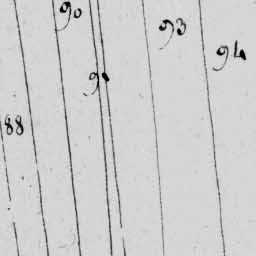 90
93
94
9
88